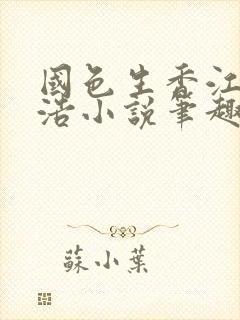 國色生香江
浩小說筆趣
蘇小葉